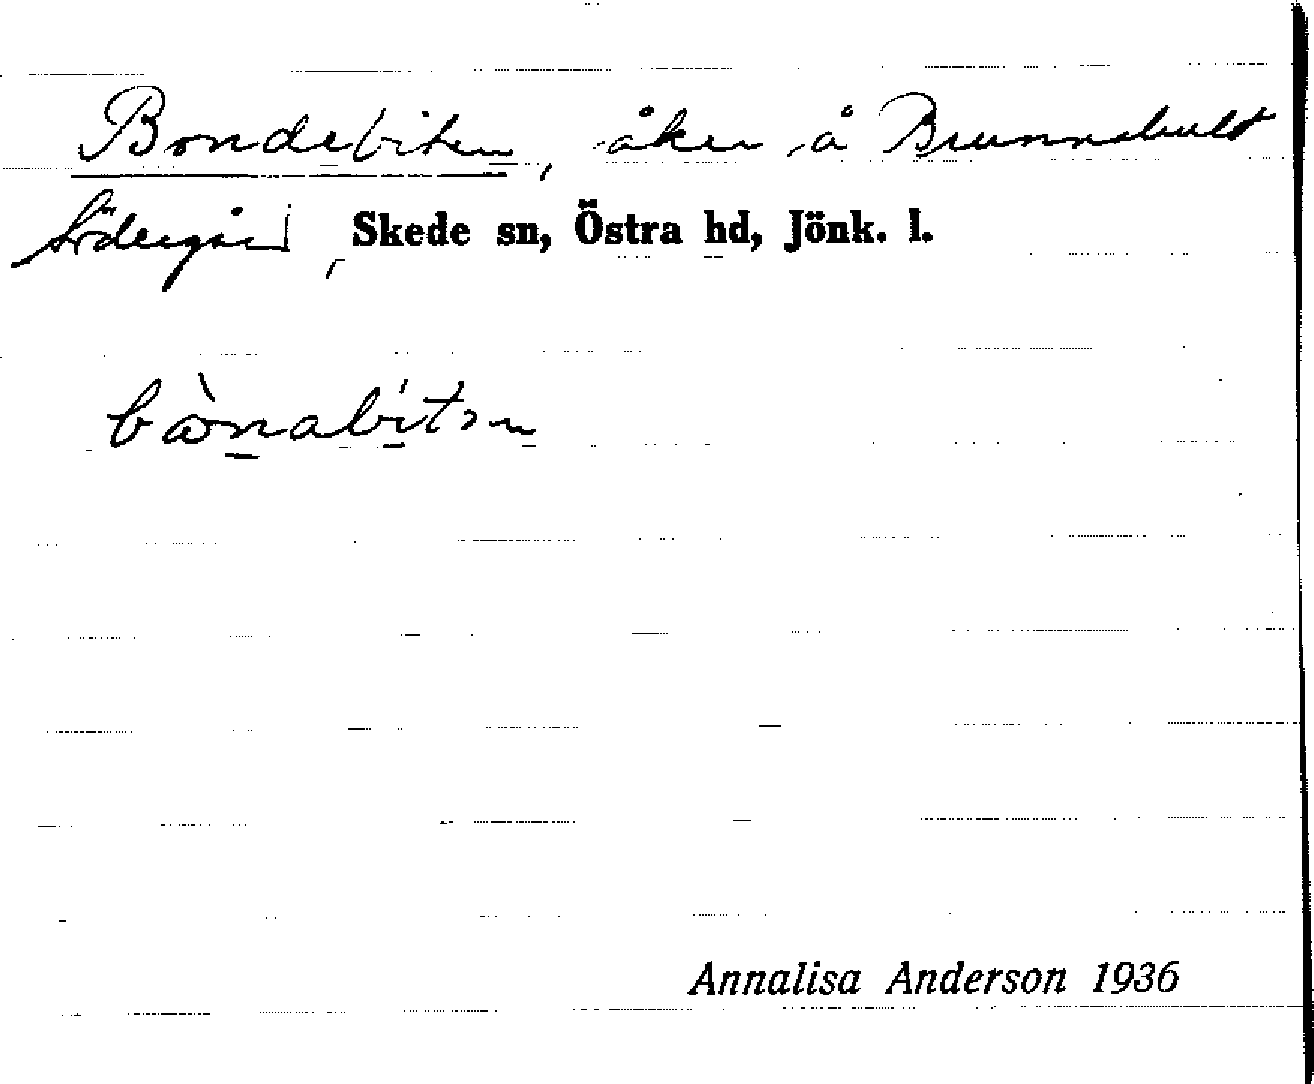 Bondebiten, åker å Brunnshult
Södergård, Skede sn, Östra hd, Jönk. l.
bònabítən
Annalisa Anderson 1936